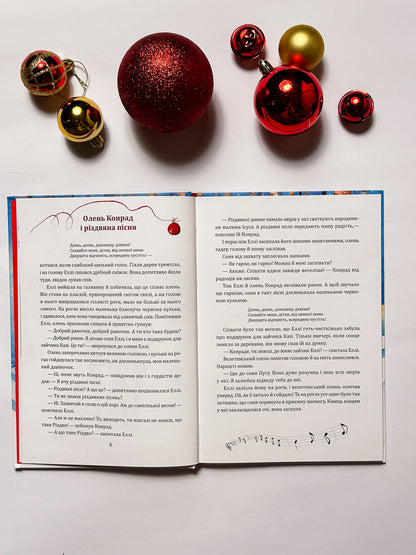 Олень Конрад
і різдвяна пісня
Дзень, дзень, дзвонику, дзвени!
Сховайте мене, дітки, від зимної зими.
Дверцята відчиніть, всередину пустіть! —
котився лісом глибокий низький голос. Гілля дерев тремтіло,
і на голову Еллі сипався дрібний сніжок. Вона допитливо йшла
туди, звідки лунав спів.
Еллі вийшла на галявину й побачила, що це співає олень.
Він стояв на пласкій, припорошеній снігом скелі, а на голові
з нього виростали гіллясті роги, мало не більші за нього
самого. На рогах висіла маленька блискуча червона кулька,
і здавалося, наче вона танцювала під звуки пісні. Помітивши
Еллі, олень припинив співати й привітно гукнув:
— Добрий раночок, добрий раночок. А хто така будеш?
— Добрий ранок. Я лісова соня Еллі, і в мене є подарунок для
зайчика Казі. Це ти? — допитливо запитала сонечка.
Олень заперечливо хитнув великою головою, і кулька на рогах
гойднулася так несамовито, аж дзенькнула, наче був маленький
дзвіночок.
— Ні, мене звуть Конрад, — повідомив він і з гордістю додав:
— Я вчу різдвяні пісні.
— Різдвяні пісні? А що це? — допитливо поцікавилася Еллі.
— Ти не знаєш різдвяних пісень?
— Ні. Зазвичай я сплю о цій порі. Аж до самісінької весни! —
пояснила Еллі.
— Але ж це жахливо! То, виходить, ти взагалі не знаєш, що
таке Різдво? — зойкнув Конрад.
— А що таке Різдво? — запитала Еллі.
8
— Різдвяної днини чимало звірів у лісі святкують народження
малюка Ісуса. А різдвяні пісні передають нашу радість, —
пояснив їй Конрад.
І перш ніж Еллі засипала його іншими запитаннями, олень
задер голову й знову заспівав.
Соня від захвату заплескала лапками.
— Як гарно, як гарно! Можна й мені заспівати?
— Авжеж. Співати вдвох завжди веселіше! — Конрад від
радощів аж засяяв.
Тож Еллі й олень Конрад заспівали разом. А щоб звучало
ще гарніше, соня в такт пісні дзенькала маленькою червоною
кулькою.
Дзень, дзень, дзвонику, дзвени!
Сховайте мене, дітки, від зимної зими.
Дверцята відчиніть, всередину пустіть!
Співати було так весело, що Еллі геть-чистісінько забула
про подарунок для зайчика Казі. Тільки ввечері, коли сонце
зникло за деревами, він знову спав їй на думку.
— Конраде, ти знаєш, де живе зайчик Казі? — спитала Еллі.
Велетенський олень похитав головою й почав розмірковувати.
Нарешті мовив:
— Іди до сови Пугу. Вона дуже розумна і знає всіх звірів
у лісі. Я залюбки відведу тебе до неї.
Еллі залізла йому на роги, і велетенський олень помчав
уперед. Ой, як її хитало й гойдало! Та на рогах усе одно було так
затишно, що соня поринула в приємну дрімоту. Кінець кінцем
у неї заплющилися очі, вона заснула.